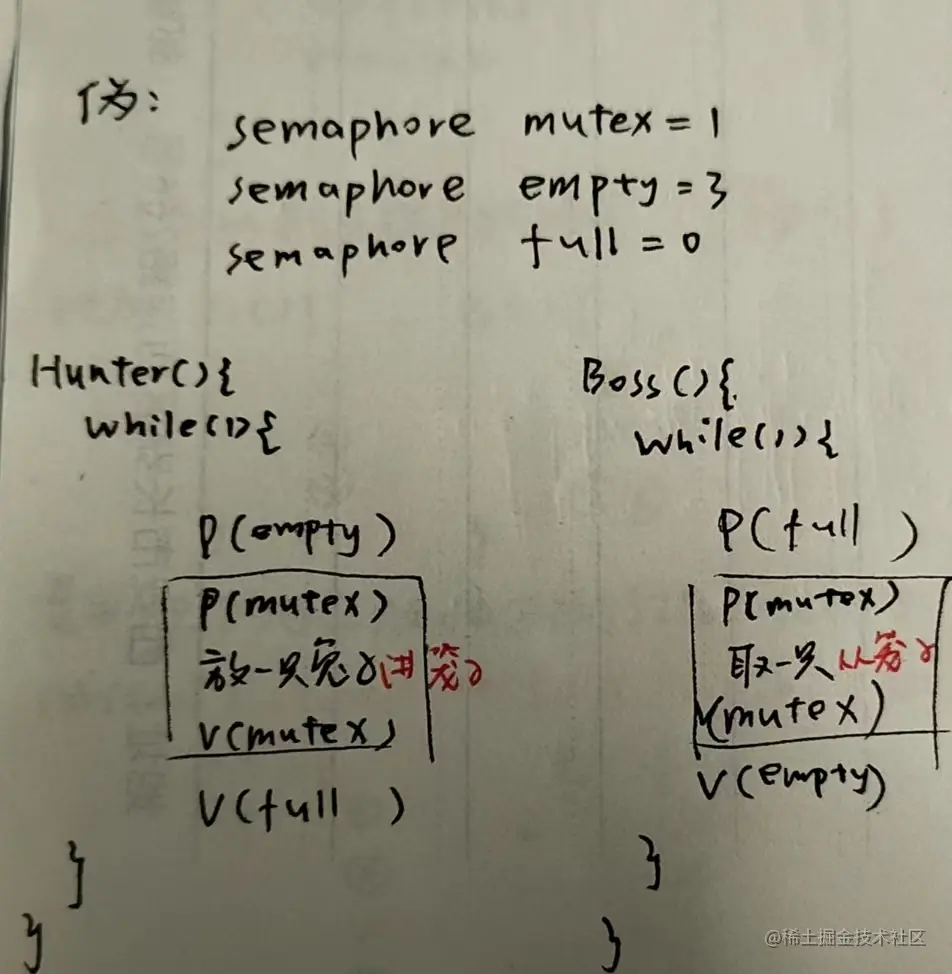 伪:
semaphore mutex = 1
semaphore empty = 3
semaphore full = 0
Hunter(){
while(1){
P(empty)
P(mutex)
放一只兔子进笼子
V(mutex)
V(full )
}
}
Boss(){
while(1){
P(full )
P(mutex)
取一只从笼子
V(mutex)
V(empty)
}
}
@稀土掘金技术社区